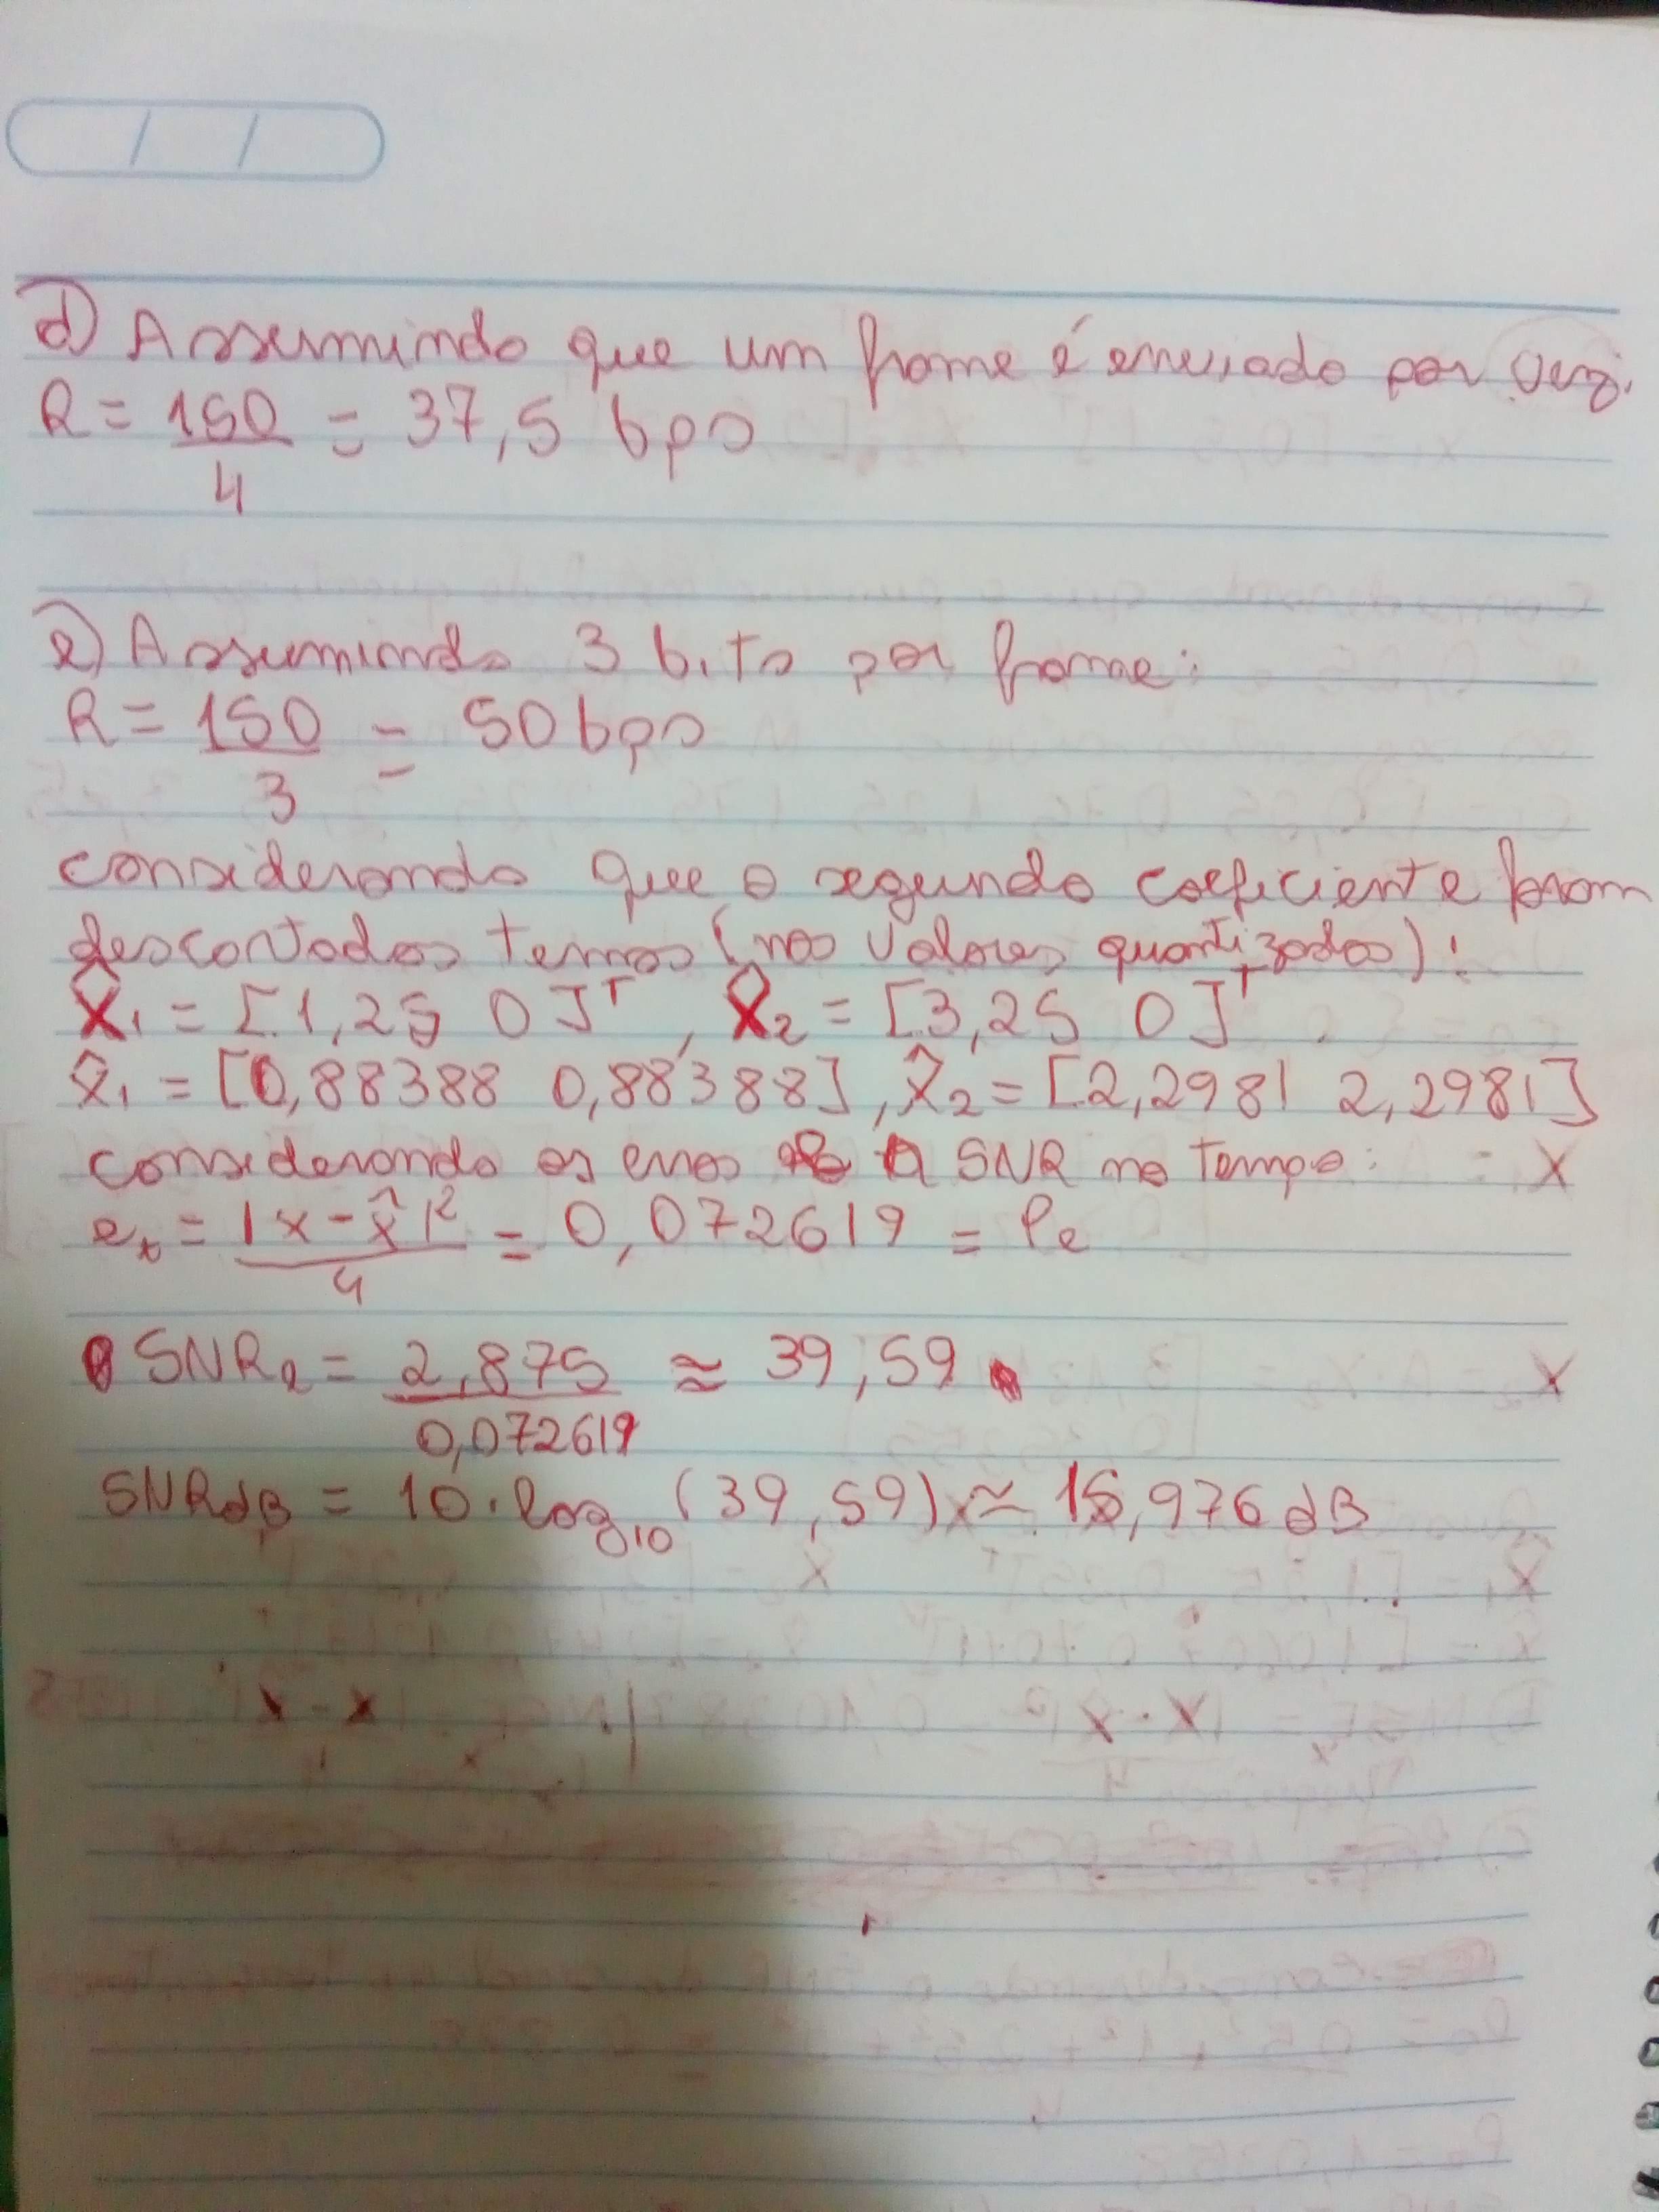 d) Assumindo que um frame é enviado por vez.
R = 150/4 = 37,5 bps
e) Assumindo 3 bits por frame:
R = 150/3 = 50 bps
considerando que o segundo coeficiente foram
descartados temos (nos valores quantizados):
X̂₁ = [1,25 0]ᵀ, X̂₂ = [3,25 0]ᵀ
x̂₁ = [0,88388 0,88388], x̂₂ = [2,2981 2,2981]
considerando os erros SNR no tempo:
eₓ = |x - x̂|²/4 = 0,072619 = Pe
SNRe = 2,875/0,072619 ≈ 39,59
SNRdB = 10·log₁₀(39,59) ≈ 15,976 dB